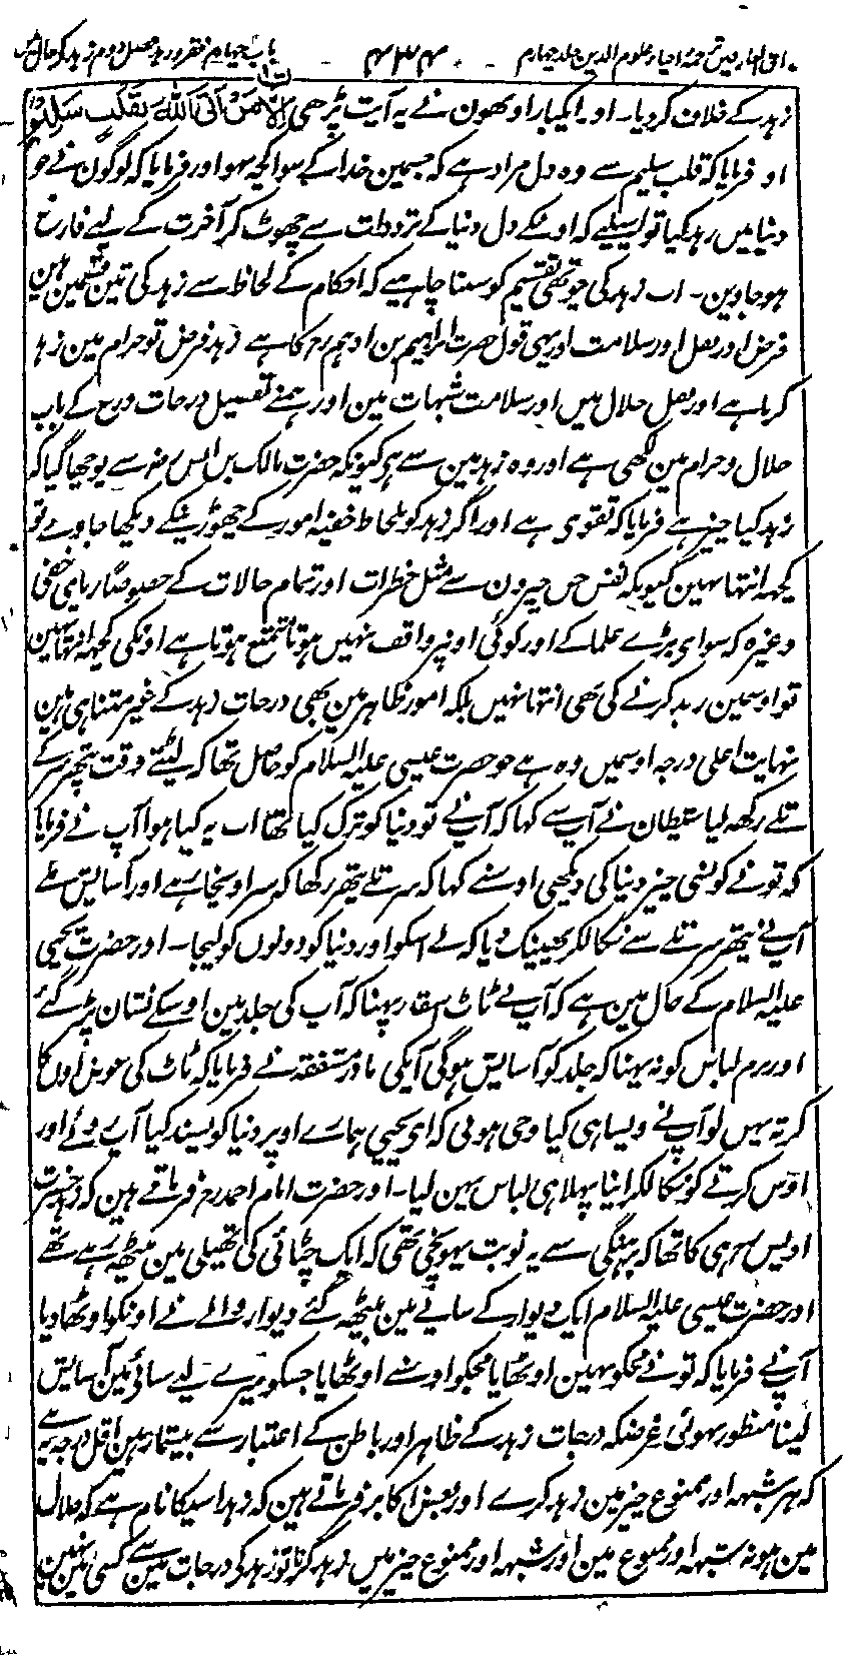 مذاق العارفین ترجمہ احیاء علوم الدین جلد چہارم ۴۳۴ باب چہارم فقر و زہد فصل دوم زہد کے حال میں
زہد کے خلاف کر دیا۔ اور ایکبار اونھون نے یہ آیت پڑھی اِلَّا مَنْ اَتَی اللّٰہَ بِقَلْبٍ سَلِیْمٍ
اور فرمایا کہ قلب سلیم سے وہ دل مراد ہے کہ جسمین خدا کے سوا کچھ نہو اور فرمایا کہ لوگون نے جو
دنیا میں زہد کیا تو اسلیے کہ اونکے دل دنیا کے ترددات سے چھوٹ کر آخرت کے لیے فارغ
ہو جاوین۔ اب زہد کی چوتھی تقسیم کو سننا چاہیے کہ احکام کے لحاظ سے زہد کی تین قسمین ہین
فرض اور نفل اور سلامت اور یہی قول حضرت ابراہیم بن ادہم رح کا ہے زہد فرض تو حرام مین زہد
کرنا ہے اور نفل حلال میں اور سلامت شبہات مین اور ہمنے تفصیل درجات ورع کے باب
حلال و حرام مین لکھی ہے اور وہ زہد مین سے ہی کیونکہ حضرت مالک بن انس رض سے پوچھا گیا کہ
زہد کیا چیز ہے فرمایا کہ تقوی ہے اور اگر زہد کو بلحاظ خفیہ امور کے چھوڑنیکے دیکھا جاوے تو
کچھہ انتہا نہین کیونکہ نفس جن چیزون سے مثل خطرات اور تمام حالات کے خصوصًا ریای خفی
وغیرہ کہ سوای بڑے علما کے اور کوئی اونپر واقف نہیں ہوتا متمتع ہوتا ہے اونکی کچھہ انتہا نہین
تو اوسمین زہد کرنے کی بھی انتہا نہیں بلکہ امور ظاہر مین بھی درجات زہد کے غیر متناہی ہین
نہایت اعلی درجہ اوسمیں وہ ہے جو حضرت عیسی علیہ السلام کو حاصل تھا کہ لیٹتے وقت پتھر سر کے
تلے رکھہ لیا شیطان نے آپ سے کہا کہ آپ نے تو دنیا کو ترک کیا تھا اب یہ کیا ہوا آپ نے فرمایا
کہ تو نے کونسی چیز دنیا کی دیکھی اوسنے کہا کہ سر تلے پتھر رکھا کہ سر اونچا رہے اور آسایش ملے
آپ نے پتھر سر تلے سے نکالکر پھینک دیا کہ لے اسکو اور دنیا کو دونوں کو لیجا۔ اور حضرت یحیی
علیہ السلام کے حال مین ہے کہ آپ نے ٹاٹ اسقدر پہنا کہ آپ کی جلد مین اوسکے نشان پڑ گئے
اور نرم لباس کو نہ پہنا کہ جلد کو آسایش ہو گی آپکی مادر مشفقہ نے فرمایا کہ ٹاٹ کی عوض اون کا
کرتہ پہن لو آپ نے ویسا ہی کیا وحی ہوئی کہ ای یحیی ہمارے اوپر دنیا کو پسند کیا آپ روئے اور
اوس کرتے کو نکالکر اپنا پہلا ہی لباس پہن لیا۔ اور حضرت امام احمد رح فرماتے ہین کہ زہد حضرت
اویس رح ہی کا تھا کہ برہنگی سے یہ نوبت پہونچی تھی کہ ایک چٹائی کی تھیلی مین بیٹھہ رہے تھے
اور حضرت عیسی علیہ السلام ایک دیوار کے سایے مین بیٹھہ گئے دیوار والے نے اونکو اوٹھا دیا
آپ نے فرمایا کہ تو نے مجکو نہین اوٹھایا مجکو اوسنے اوٹھایا جسکو میرے لیے سائی مین آسایش
لینا منظور نہوئی غرضکہ درجات زہد کے ظاہر اور باطن کے اعتبار سے بیشمار ہین اقل درجہ یہ ہے
کہ ہر شبہہ اور ممنوع چیز مین زہد کرے اور بعض اکابر فرماتے ہین کہ زہد اسیکا نام ہے کہ حلال
مین ہو نہ شبہہ اور ممنوع مین اور شبہہ اور ممنوع چیز میں زہد کرنا تو زہد کی درجات مین سے کسی مین نہین